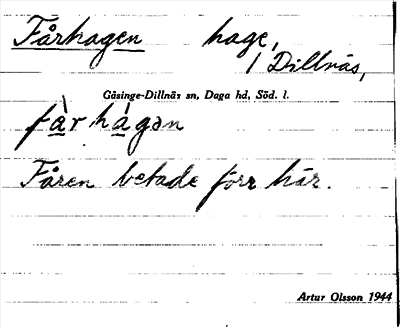 Fårhagen hage,
i Dillnäs,
Gåsinge-Dillnäs sn, Daga hd, Söd. l.
fą̀r hą́gən
Fåren betade förr här.
Artur Olsson 1944